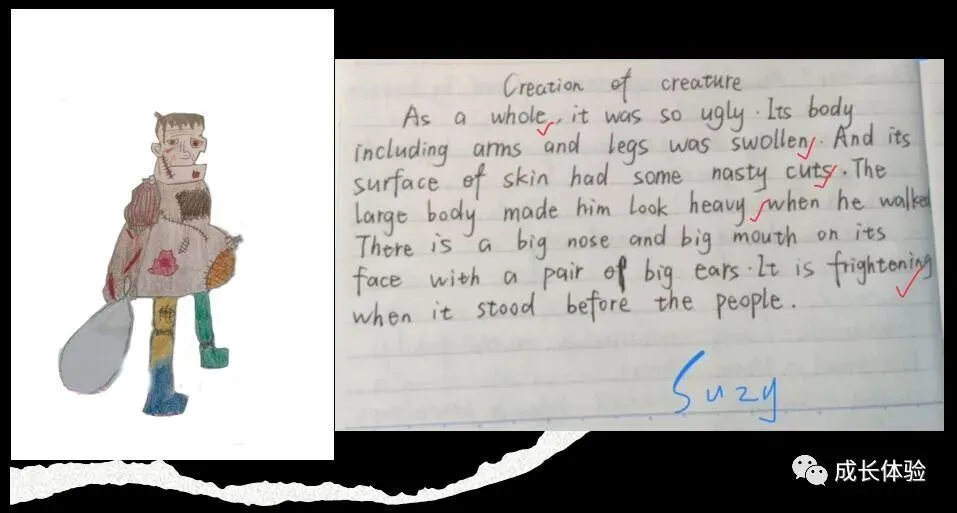 Creation of creature
As a whole, it was so ugly. Its body
including arms and legs was swollen. And its
surface of skin had some nasty cuts. The
large body made him look heavy when he walked
There is a big nose and big mouth on its
face with a pair of big ears. It is frightening
when it stood before the people.
Suzy
成长体验